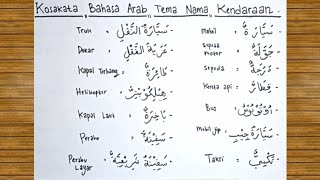 Kosakata Bahasa Arab Tema Nama Kendaraan
Truk = سَيَّارَةُ النَّقْلِ -
Mobil = سَيَّارَةٌ -
Dokar = عَرَبَةُ النَّقْلِ -
sepeda motor = جَوَّالَةٌ -
Kapal Terbang = طَائِرَةٌ -
Sepeda = دَرَّاجَةٌ -
Helikopter = هِلِيكُوبْتَرٌ -
Kereta api = قِطَارٌ -
Kapal Laut = بَاخِرَةٌ -
Bus = أُوتُوبُوسٌ -
Perahu = سَفِينَةٌ -
Mobil jip = سَيَّارَةُ جِيبٍ -
Perahu Layar = سَفِينَةٌ شِرَاعِيَّةٌ -
Taksi = تَكْسِيٌّ -